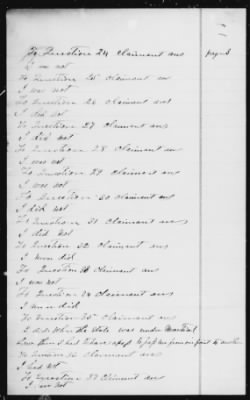 To Question 24 Claimant ans page 3
I am not
To Question 25 Claimant ans
I was not
To Question 26 Claimant ans
I did not
To Question 27 Claimant ans
I did not
To Question 28 Claimant ans
I was not
To Question 29 Claimant ans
I was not
To Question 30 Claimant ans
I did not
To Question 31 Claimant ans
I did not
To Question 32 Claimant ans
I never did
To Question Claimant ans
I was not
To Question Claimant ans
I never did
To Question 35 Claimant ans
I did when the state was under Martial
Law then I had to have a pass to pass from point to another
To Question 36 Claimant ans
I had not
To Question 37 Claimant ans
I was not